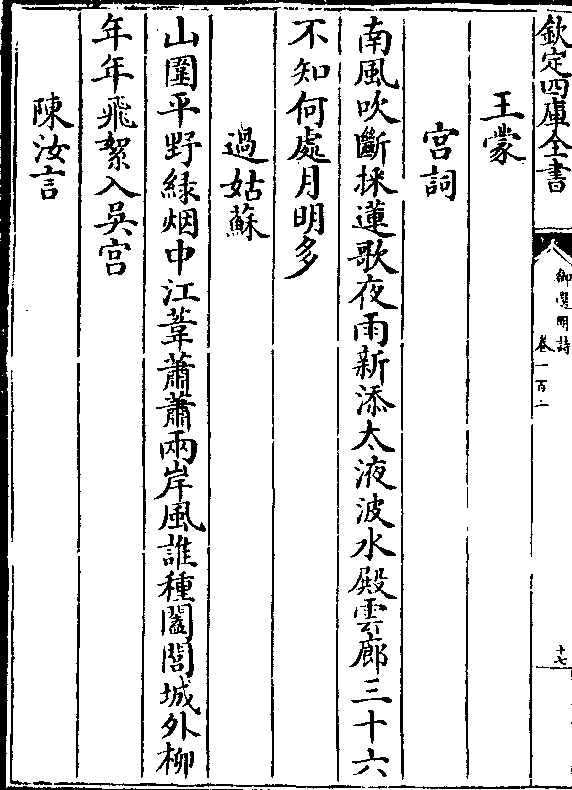 欽定四庫全書
御選明詩
卷一百二
十七
王蒙
宮詞
南風吹斷採蓮歌夜雨新添太液波水殿雲廊三十六
不知何處月明多
過姑蘇
山圍平野緑烟中江葦蕭蕭兩岸風誰種闔閭城外柳
年年飛絮入吳宮
陳汝言